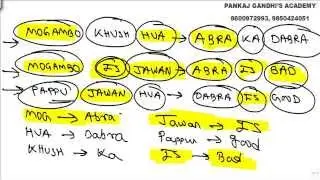 PANKAJ GANDHI'S ACADEMY
9600972993, 9850424051
→ MOGAMBO KHUSH HUA → ABRA KA DABRA
→ MOGAMBO IS JAWAN → ABRA IS BAD
→ PAPPU JAWAN HUA → DABRA IS GOOD
MOG → Abra Jawan → IS
HUA → Dabra Pappu → good
KHUSH → Ka IS → Bad